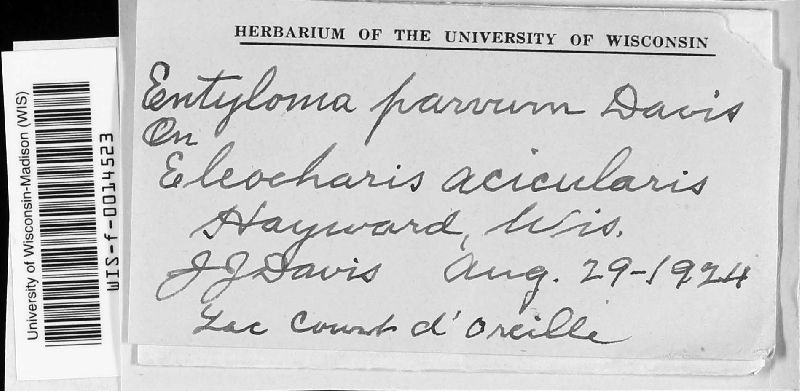 HERBARIUM OF THE UNIVERSITY OF WISCONSIN
Entyloma parvum Davis
On
Eleocharis acicularis
Hayward, Wis.
J J Davis Aug. 29-1924
Lac Court d'Oreille
University of Wisconsin-Madison (WIS)
WIS-f-0014523